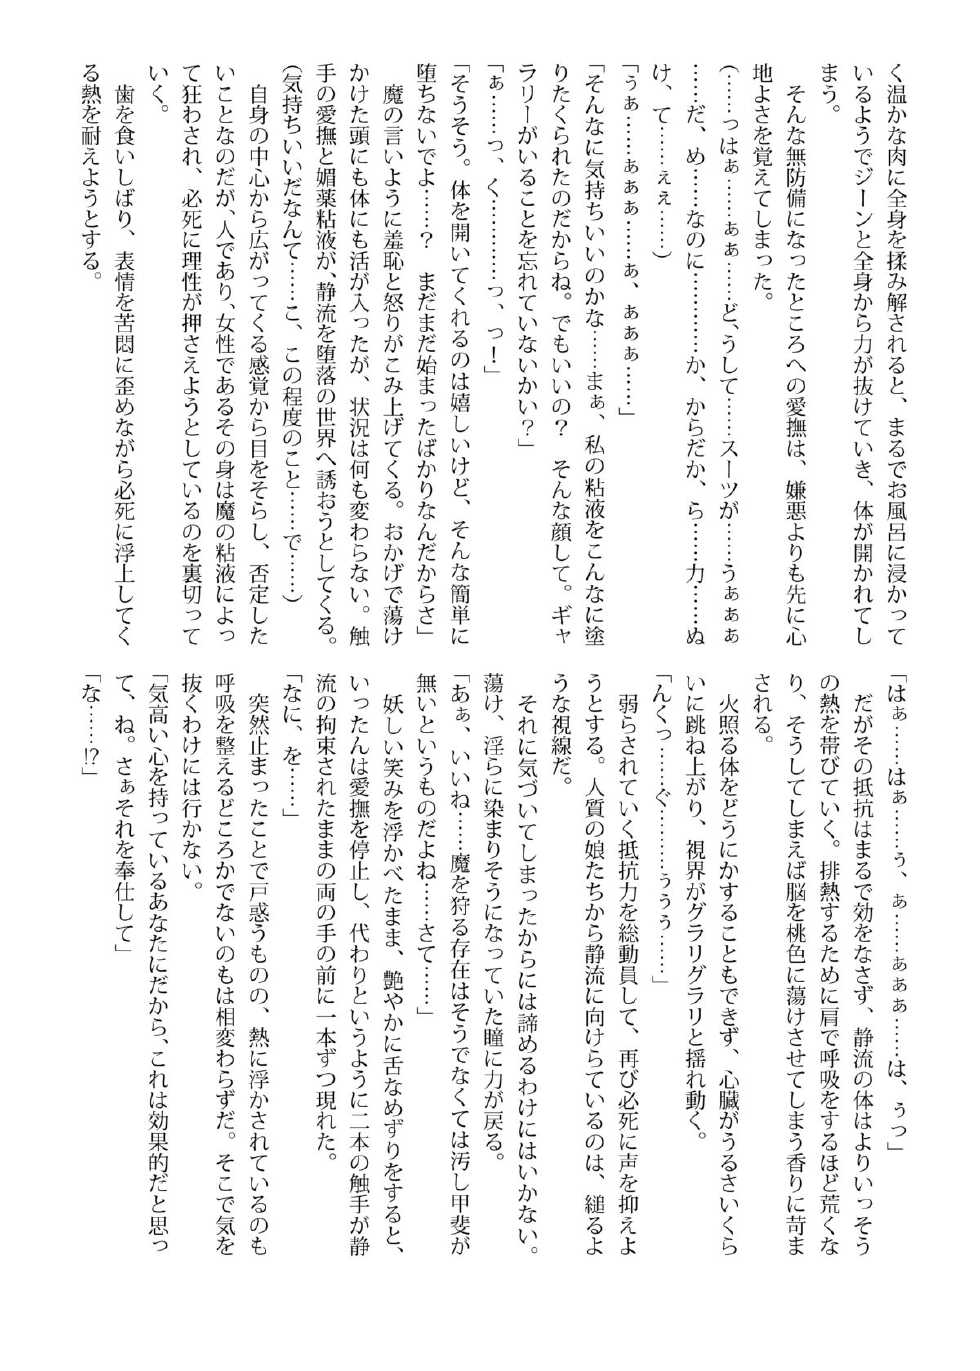 く温かな肉に全身を揉み解されると、まるでお風呂に浸かって
いるようでジーンと全身から力が抜けていき、体が開かれてし
まう。
　そんな無防備になったところへの愛撫は、嫌悪よりも先に心
地よさを覚えてしまった。
（……っはぁ……ぁぁ……ど、うして……スーツが……うぁぁぁ
……だ、め……なのに…………か、からだか、ら……力……ぬ
け、て……ぇぇ……）
「うぁ……ぁぁぁ……ぁ、ぁぁぁ……」
「そんなに気持ちいいのかな……まぁ、私の粘液をこんなに塗
りたくられたのだからね。でもいいの？　そんな顔して。ギャ
ラリーがいることを忘れていないかい？」
「ぁ……っ、く…………っ、っ！」
「そうそう。体を開いてくれるのは嬉しいけど、そんな簡単に
堕ちないでよ……？　まだまだ始まったばかりなんだからさ」
　魔の言いように羞恥と怒りがこみ上げてくる。おかげで蕩け
かけた頭にも体にも活が入ったが、状況は何も変わらない。触
手の愛撫と媚薬粘液が、静流を堕落の世界へ誘おうとしてくる。
（気持ちいいだなんて……こ、この程度のこと……で……）
　自身の中心から広がってくる感覚から目をそらし、否定した
いことなのだが、人であり、女性であるその身は魔の粘液によっ
て狂わされ、必死に理性が押さえようとしているのを裏切って
いく。
　歯を食いしばり、表情を苦悶に歪めながら必死に浮上してく
る熱を耐えようとする。
「はぁ……はぁ……う、ぁ……ぁぁぁ……は、うっ」
　だがその抵抗はまるで効をなさず、静流の体はよりいっそう
の熱を帯びていく。排熱するために肩で呼吸をするほど荒くな
り、そうしてしまえば脳を桃色に蕩けさせてしまう香りに苛ま
される。
　火照る体をどうにかすることもできず、心臓がうるさいくら
いに跳ね上がり、視界がグラリグラリと揺れ動く。
「んくっ……ぐ…………ううう……」
　弱らされていく抵抗力を総動員して、再び必死に声を抑えよ
うとする。人質の娘たちから静流に向けらているのは、縋るよ
うな視線だ。
　それに気づいてしまったからには諦めるわけにはいかない。
蕩け、淫らに染まりそうになっていた瞳に力が戻る。
「あぁ、いいね……魔を狩る存在はそうでなくては汚し甲斐が
無いというものだよね……さて……」
　妖しい笑みを浮かべたまま、艶やかに舌なめずりをすると、
いったんは愛撫を停止し、代わりというように二本の触手が静
流の拘束されたままの両の手の前に一本ずつ現れた。
「なに、を……」
　突然止まったことで戸惑うものの、熱に浮かされているのも
呼吸を整えるどころかでないのもは相変わらずだ。そこで気を
抜くわけには行かない。
「気高い心を持っているあなたにだから、これは効果的だと思っ
て、ね。さぁそれを奉仕して」
「な……!?」